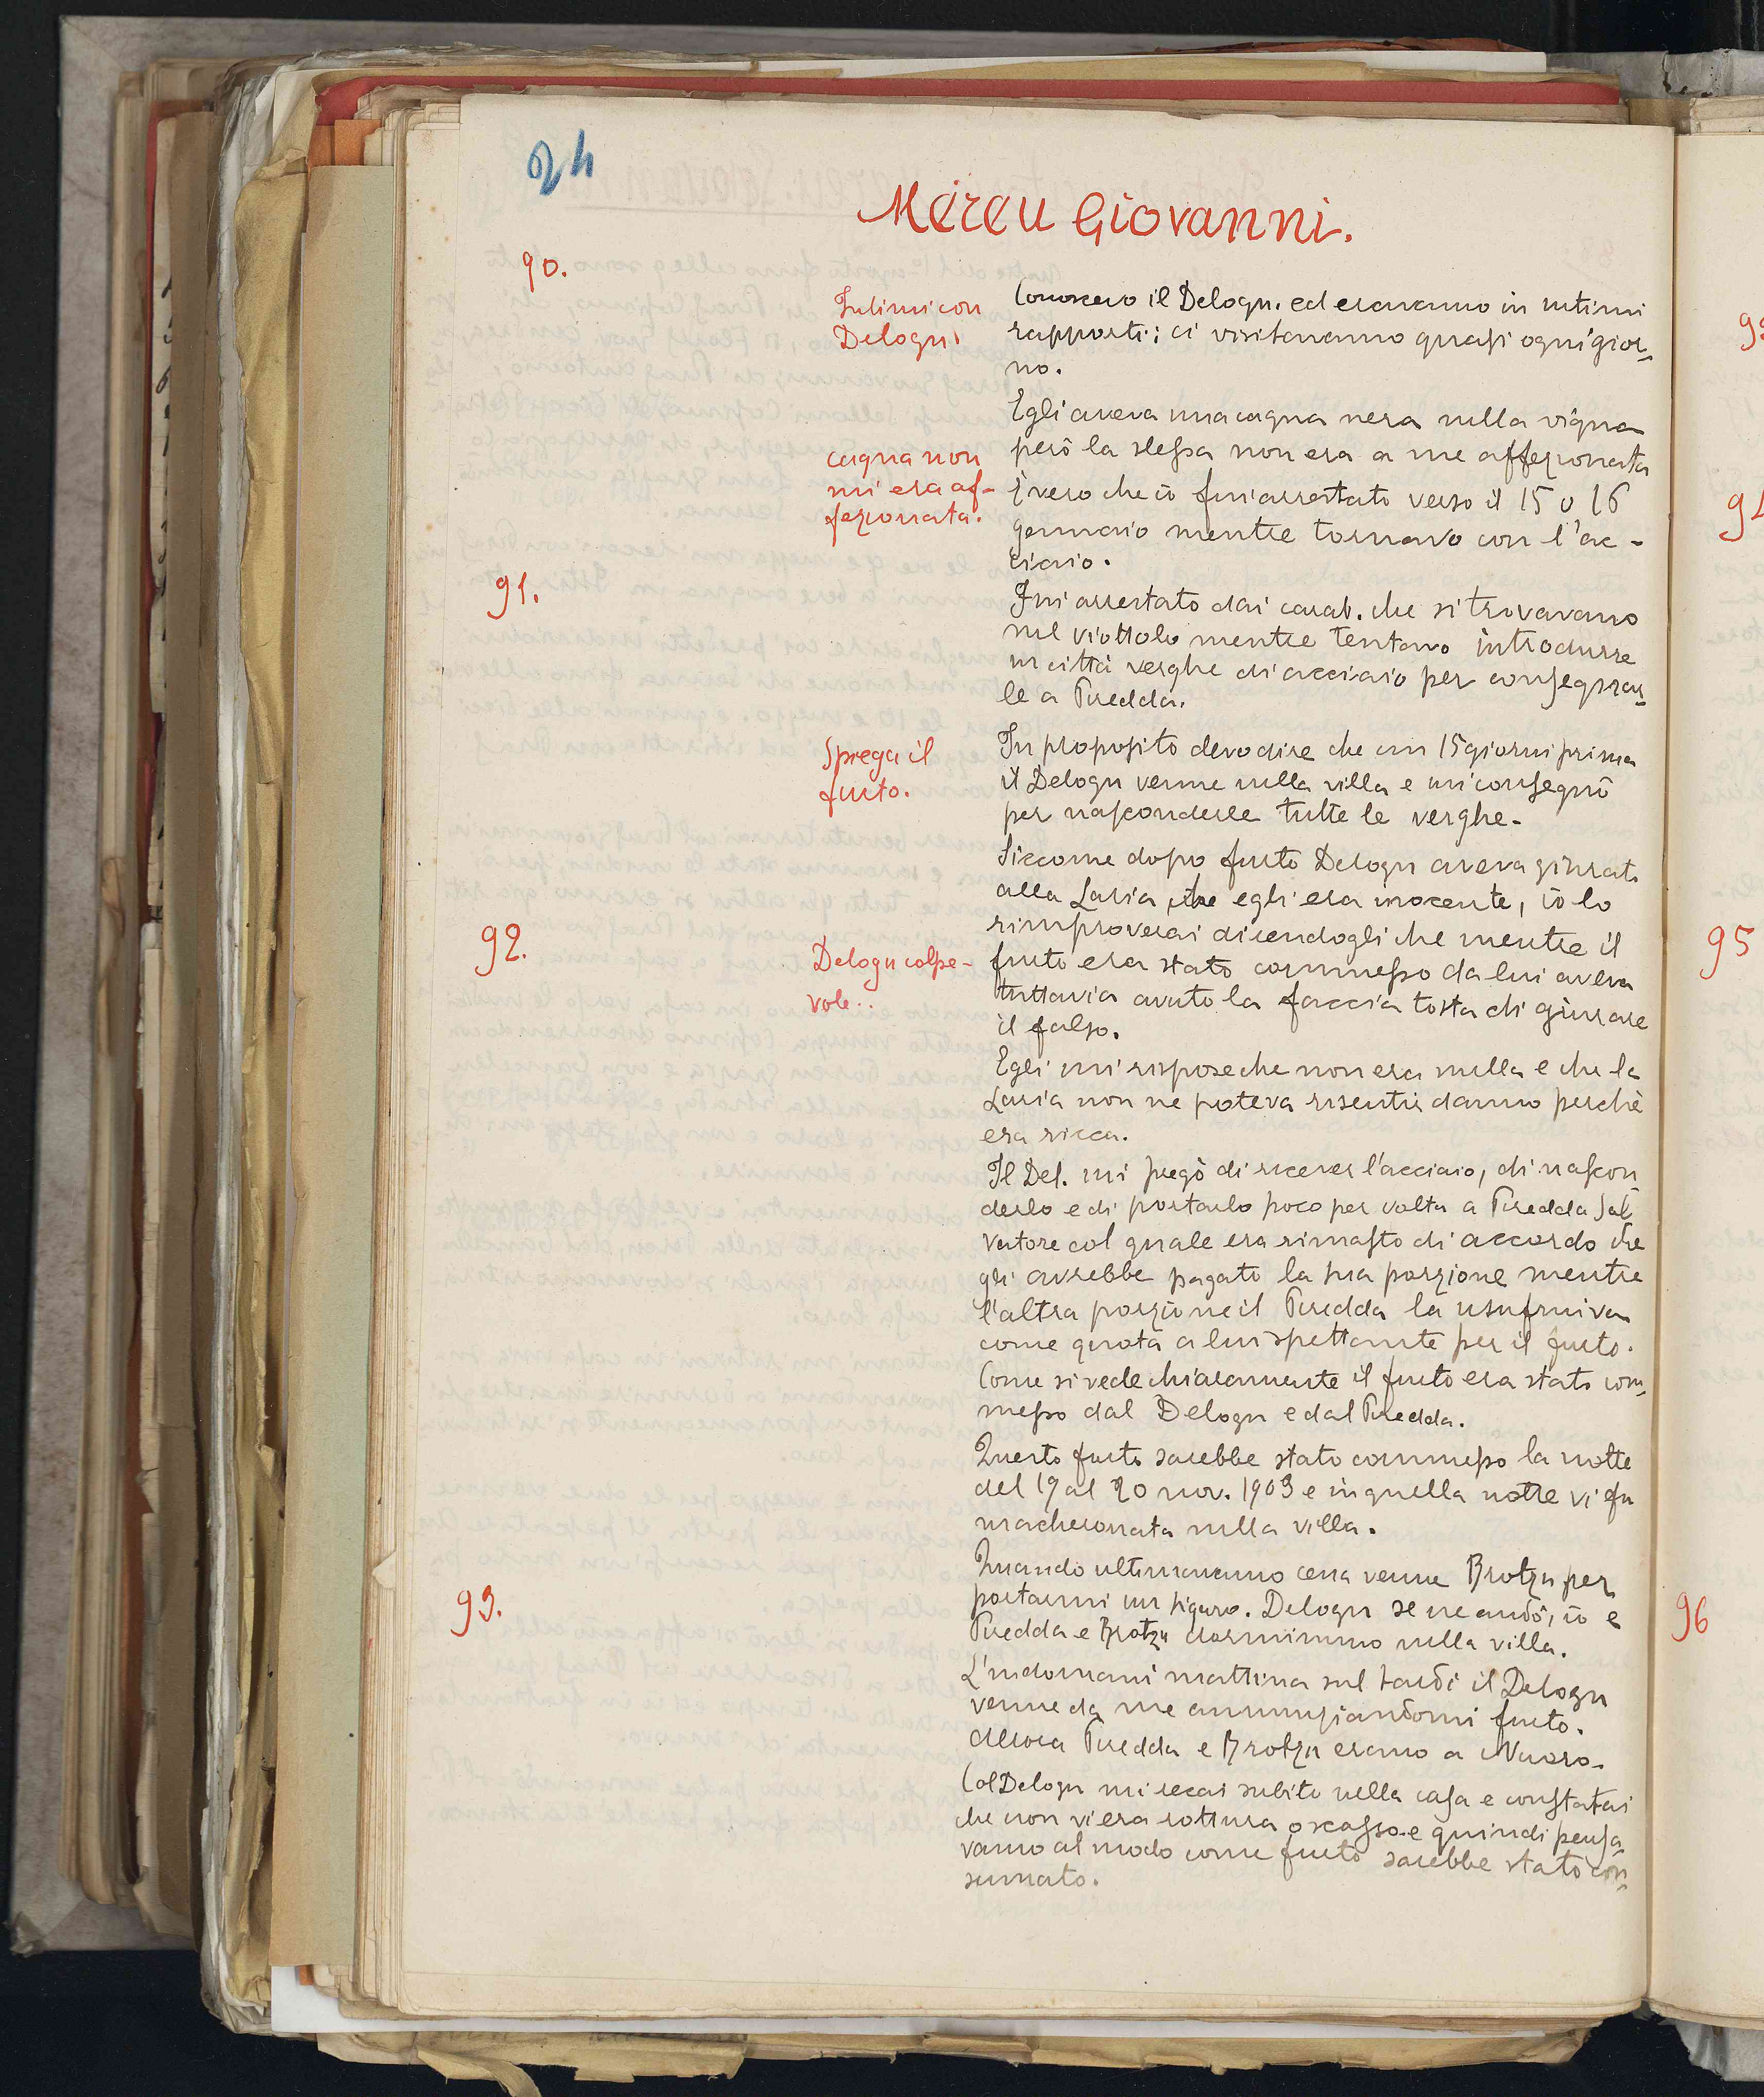 24
Mereu Giovanni.
90.
Intimi con
Delogu
Conoscevo il Delogu. ed eravamo in intimi
rapporti: ci visitavamo quasi ogni gior-
no.
Egli aveva una cagna nera nella vigna
però la stessa non era a me affezionata
cagna non
mi era af-
fezionata.
È vero che io fui arrestato verso il 15 o 16
gennaio mentre tornavo con l'ac-
ciaio.
91.
Fui arrestato dai carab. che si trovavano
nel viottolo mentre tentavo introdurre
in città verghe di acciaio per consegnar-
le a Puredda.
Spiega il
furto.
In proposito devo dire che un 15 giorni prima
il Delogu venne nella villa e mi consegnò
per nasconderle tutte le verghe.
Siccome dopo furto Delogu aveva giurato
alla Lavia, che egli era inocente, io lo
rimproverai dicendogli che mentre il
92.
Delogu colpe-
vole..
furto era stato commesso da lui aveva
tuttavia avuto la faccia tosta di giurare
il falso.
Egli mi rispose che non era nulla e che la
Lavia non ne poteva risentir danno perchè
era ricca.
Il Del. mi pregò di ricever l'acciaio, di nascon
derlo e di portarlo poco per volta a Puredda Sal
vatore col quale era rimasto di accordo che
gli avrebbe pagato la sua porzione mentre
l'altra porzione il Puredda la usufruiva
come quota a lui spettante per il furto.
Come si vede chiaramente il furto era stato com-
messo dal Delogu e dal Puredda.
Questo furto sarebbe stato commesso la notte
del 19 al 20 nov. 1903 e in quella notte vi fu
maccheronata nella villa.
93.
Quando ultimavamo cena venne Brotzu per
portarmi un sigaro. Delogu se ne andò, io e
Puredda e Brotzu dormimmo nella villa.
L'indomani mattina sul tardi il Delogu
venne da me annunziandomi furto.
Allora Puredda e Brotzu erano a Nuoro.
Col Delogu mi recai subito nella casa e constatai
che non vi era rottura o scasso e quindi pensa-
vamo al modo come furto sarebbe stato con-
sumato.
95
96